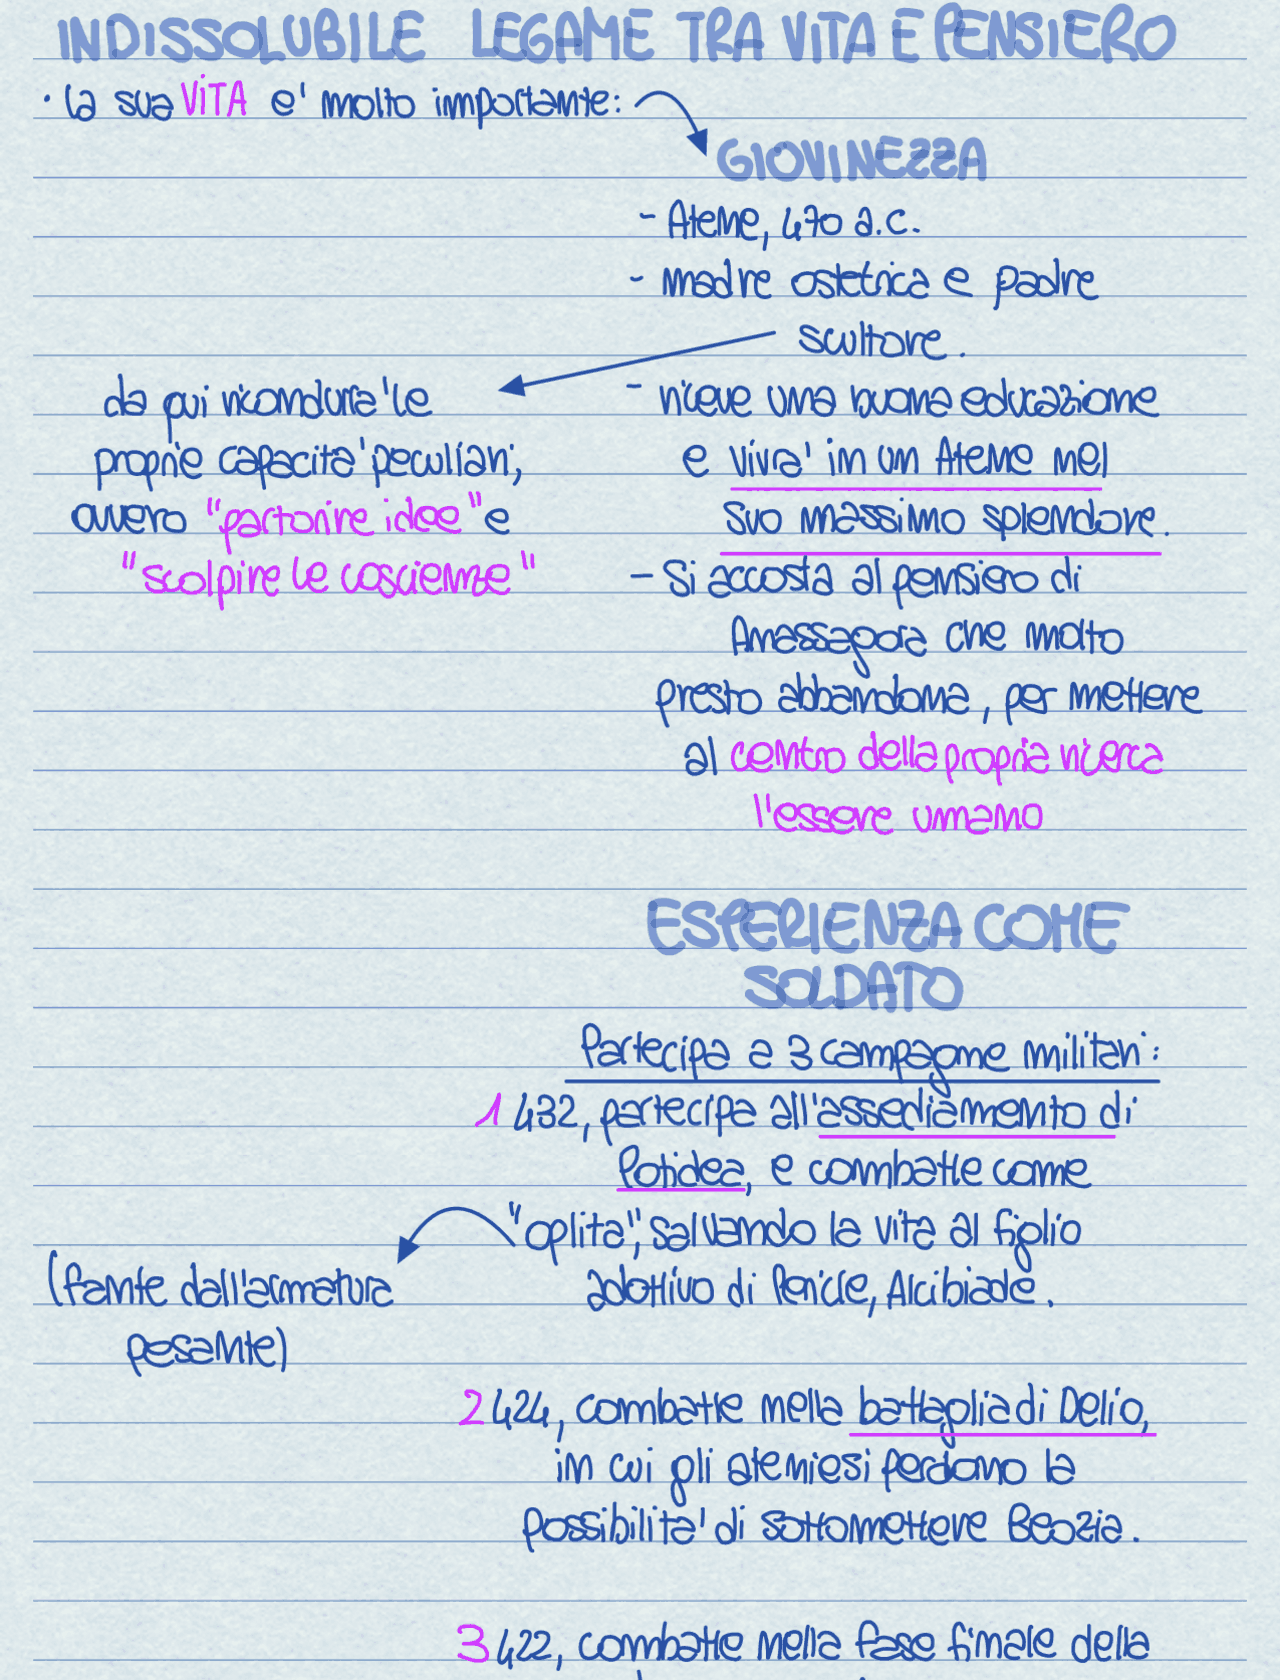 INDISSOLUBILE LEGAME TRA VITA E PENSIERO
• la sua ViTA e' molto importante:
GIOVINEZZA
- Atene, 470 a.c.
- madre ostetrica e padre
scultore.
da qui ricondurra' le
proprie capacita' peculiari,
ovvero "partorire idee" e
"scolpire le coscienze"
- riceve una buona educazione
e vivra' in un Atene nel
suo massimo splendore.
- Si accosta al pensiero di
Anassagora che molto
presto abbandona, per mettere
al centro della propria ricerca
l'essere umano
ESPERIENZA COME
SOLDATO
Partecipa a 3 campagne militari:
1 432, partecipa all'assediamento di
Potidea, e combatte come
"oplita", salvando la vita al figlio
adottivo di Pericle, Alcibiade.
(fante dall'armatura
pesante)
2 424, combatte nella battaglia di Delio,
in cui gli ateniesi perdono la
possibilita' di sottomettere Beozia.
3 422, combatte nella fase finale della